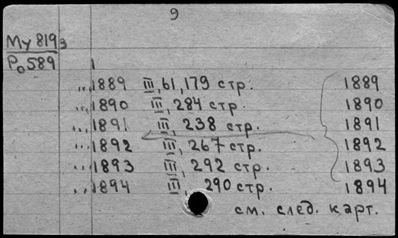 9
Му 819з
Ро 589
,,,1889 III, 61, 179 стр. 1889
,,,1890 III, 284 стр. 1890
,,,1891 III, 238 стр. 1891
,,,1892 III, 267 стр. 1892
,,,1893 III, 292 стр. 1893
,,,1894 III, 290 стр. 1894
см. след. карт.